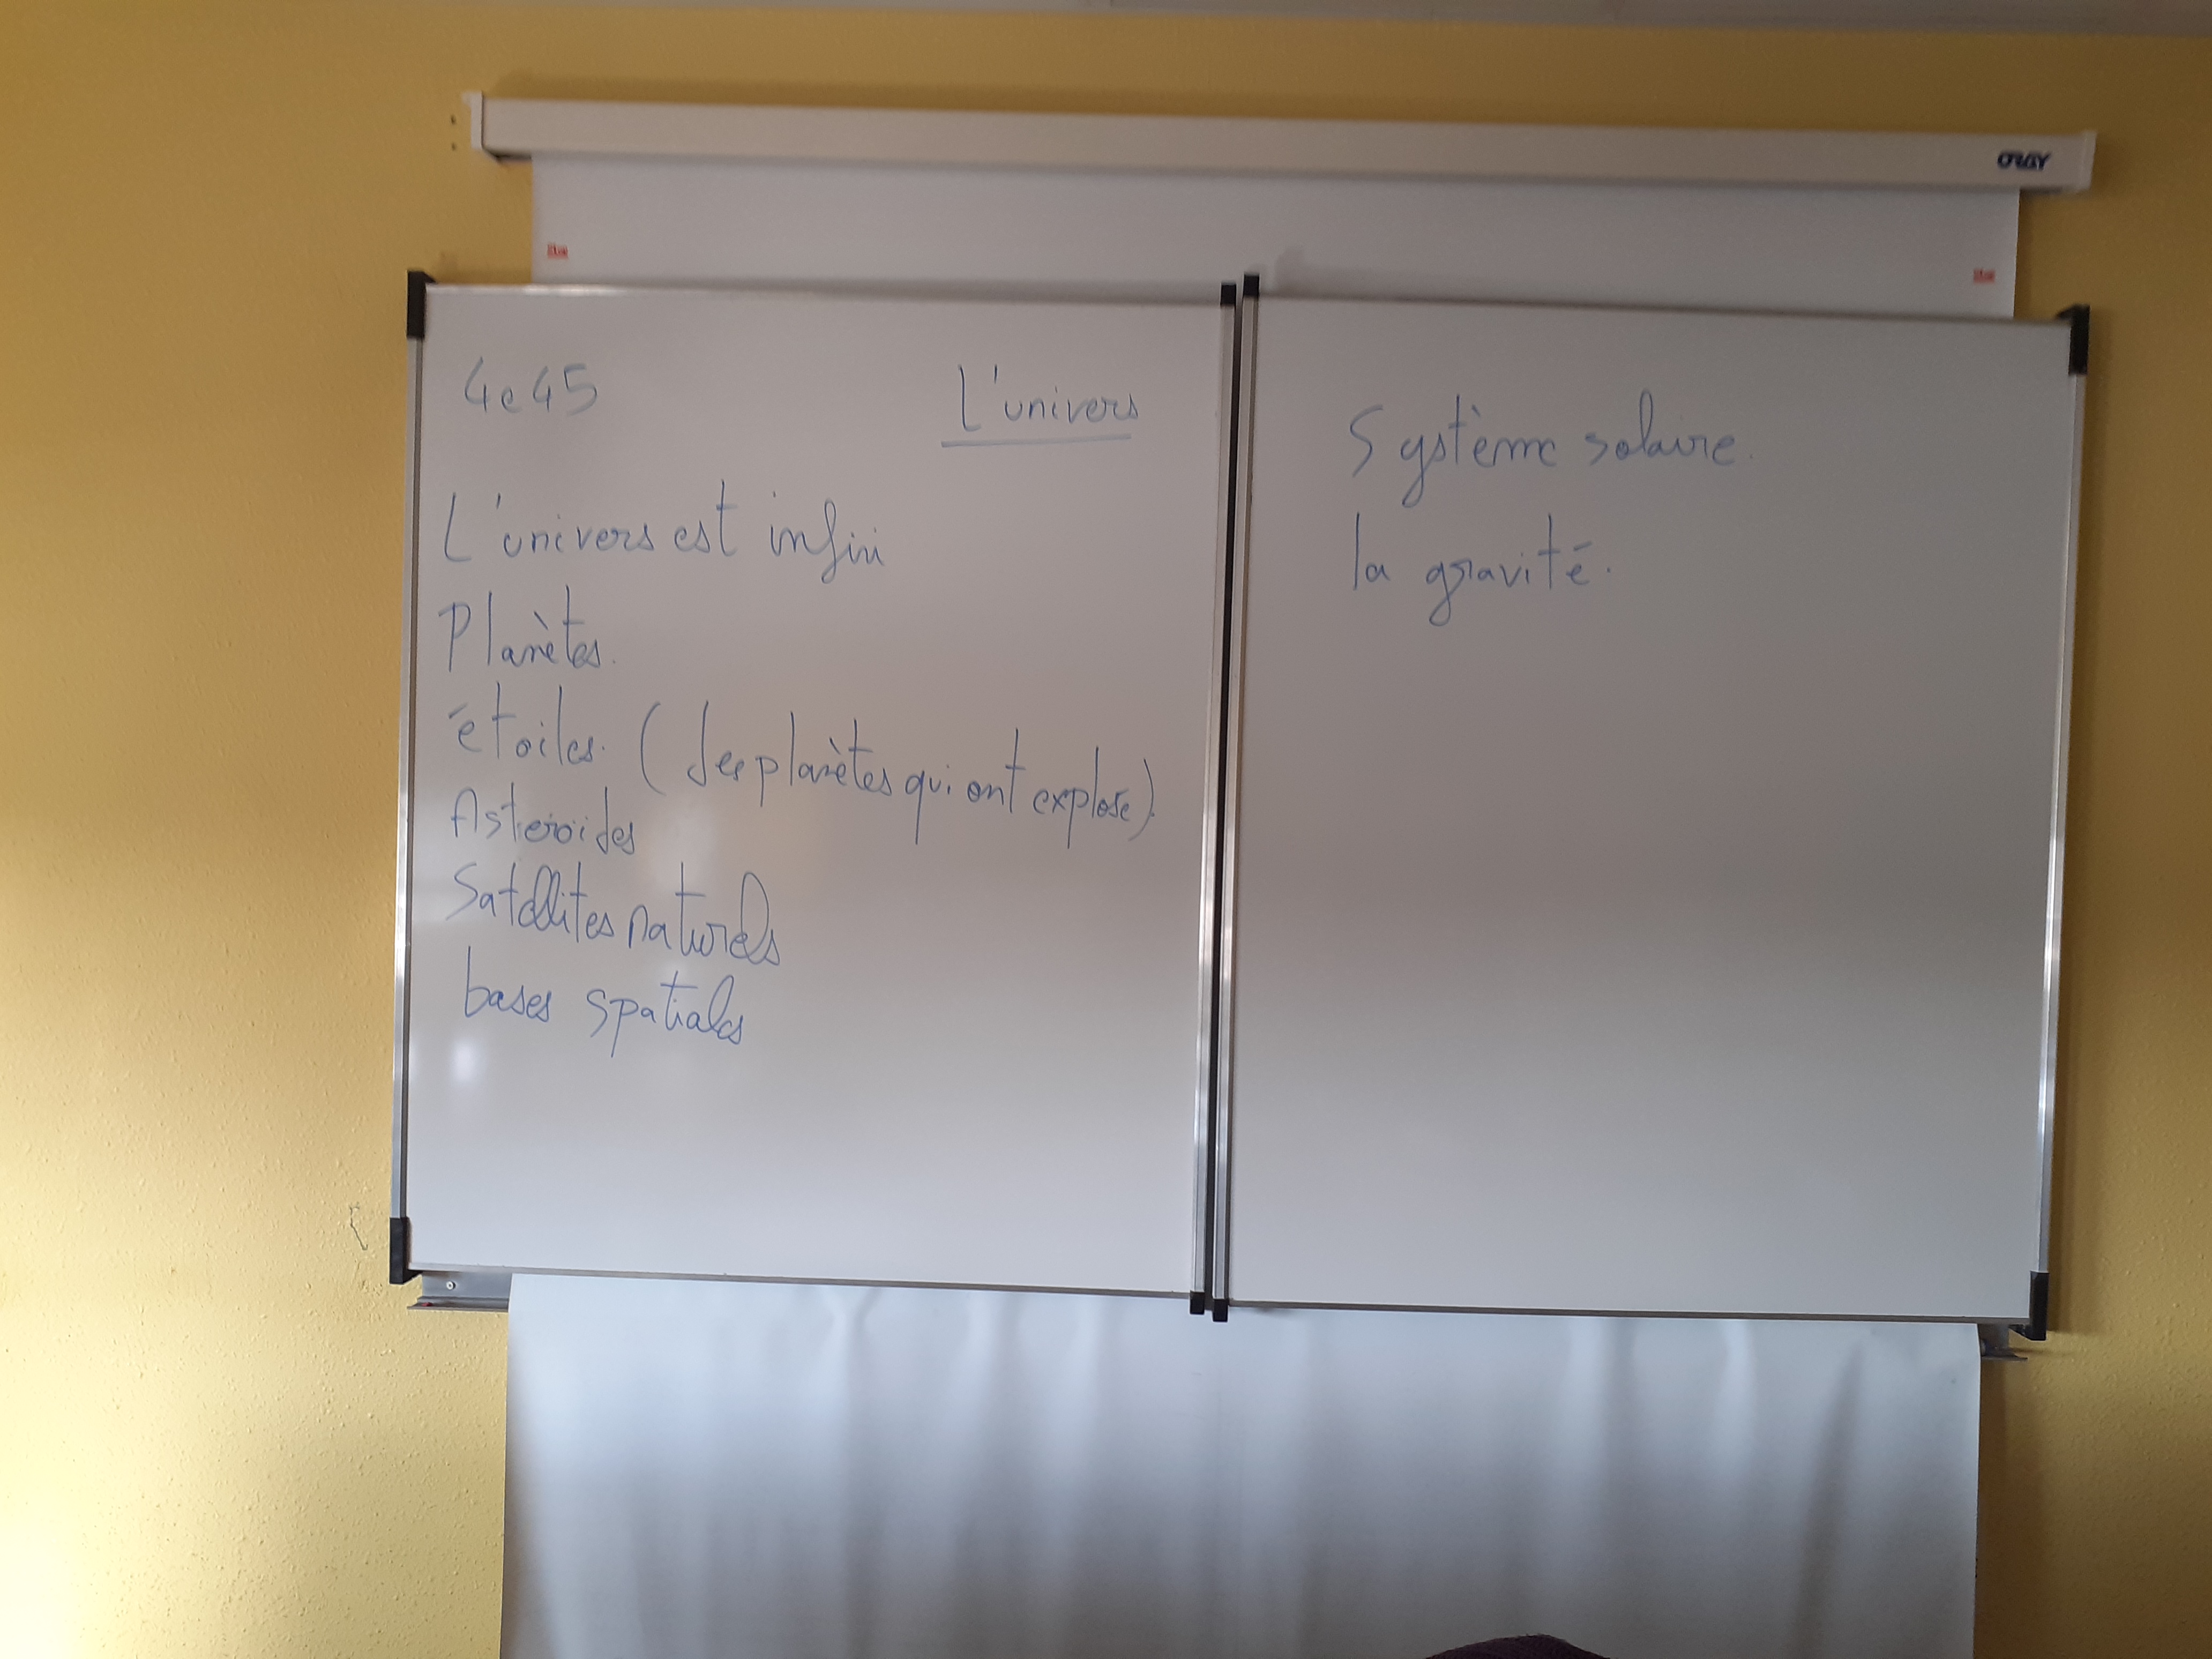 ORAY
4e45
L'univers
L'univers est infini
Planètes.
étoiles. (des planètes qui ont explosé).
Asteroïdes
Satellites naturels
bases spatiales
Système solaire.
la gravité.